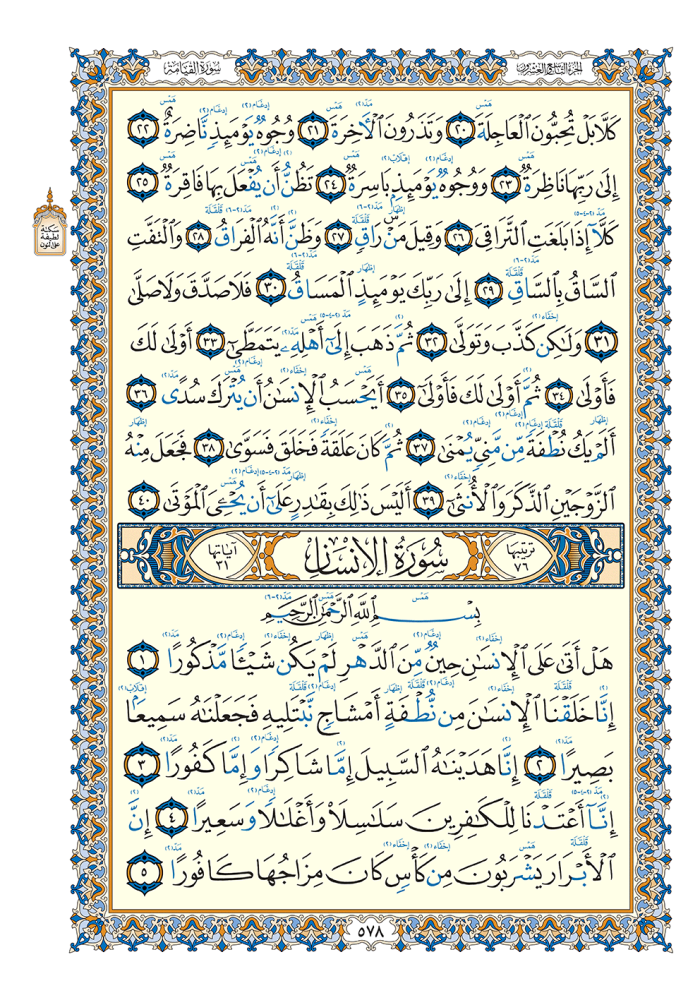 سورة القيامة
الجزء التاسع والعشرون
كَلَّا بَلْ تُحِبُّونَ الْعَاجِلَةَ ٢٠ وَتَذَرُونَ الْآخِرَةَ ٢١ وُجُوهٌ يَوْمَئِذٍ نَّاضِرَةٌ ٢٢
إِلَىٰ رَبِّهَا نَاظِرَةٌ ٢٣ وَوُجُوهٌ يَوْمَئِذٍ بَاسِرَةٌ ٢٤ تَظُنُّ أَن يُفْعَلَ بِهَا فَاقِرَةٌ ٢٥
كَلَّا إِذَا بَلَغَتِ التَّرَاقِيَ ٢٦ وَقِيلَ مَنْ رَاقٍ ٢٧ وَظَنَّ أَنَّهُ الْفِرَاقُ ٢٨ وَالْتَفَّتِ
السَّاقُ بِالسَّاقِ ٢٩ إِلَىٰ رَبِّكَ يَوْمَئِذٍ الْمَسَاقُ ٣٠ فَلَا صَدَّقَ وَلَا صَلَّىٰ
٣١ وَلَٰكِن كَذَّبَ وَتَوَلَّىٰ ٣٢ ثُمَّ ذَهَبَ إِلَىٰ أَهْلِهِ يَتَمَطَّىٰ ٣٣ أَوْلَىٰ لَكَ
فَأَوْلَىٰ ٣٤ ثُمَّ أَوْلَىٰ لَكَ فَأَوْلَىٰ ٣٥ أَيَحْسَبُ الْإِنسَٰنُ أَن يُتْرَكَ سُدًى ٣٦
أَلَمْ يَكُ نُطْفَةً مِّن مَّنِيٍّ يُمْنَىٰ ٣٧ ثُمَّ كَانَ عَلَقَةً فَخَلَقَ فَسَوَّىٰ ٣٨ فَجَعَلَ مِنْهُ
الزَّوْجَيْنِ الذَّكَرَ وَالْأُنثَىٰ ٣٩ أَلَيْسَ ذَٰلِكَ بِقَٰدِرٍ عَلَىٰ أَن يُحْـِۧيَ الْمَوْتَىٰ ٤٠
ترتيبها ٧٦ سُورَةُ الإِنْسَانِ آياتها ٣١
بِسْمِ اللَّهِ الرَّحْمَٰنِ الرَّحِيمِ
هَلْ أَتَىٰ عَلَى الْإِنسَٰنِ حِينٌ مِّنَ الدَّهْرِ لَمْ يَكُن شَيْـًٔا مَّذْكُورًا ١
إِنَّا خَلَقْنَا الْإِنسَٰنَ مِن نُّطْفَةٍ أَمْشَاجٍ نَّبْتَلِيهِ فَجَعَلْنَٰهُ سَمِيعًا
بَصِيرًا ٢ إِنَّا هَدَيْنَٰهُ السَّبِيلَ إِمَّا شَاكِرًا وَإِمَّا كَفُورًا ٣
إِنَّا أَعْتَدْنَا لِلْكَٰفِرِينَ سَلَٰسِلَا۟ وَأَغْلَٰلًا وَسَعِيرًا ٤ إِنَّ
الْأَبْرَارَ يَشْرَبُونَ مِن كَأْسٍ كَانَ مِزَاجُهَا كَافُورًا ٥
٥٧٨